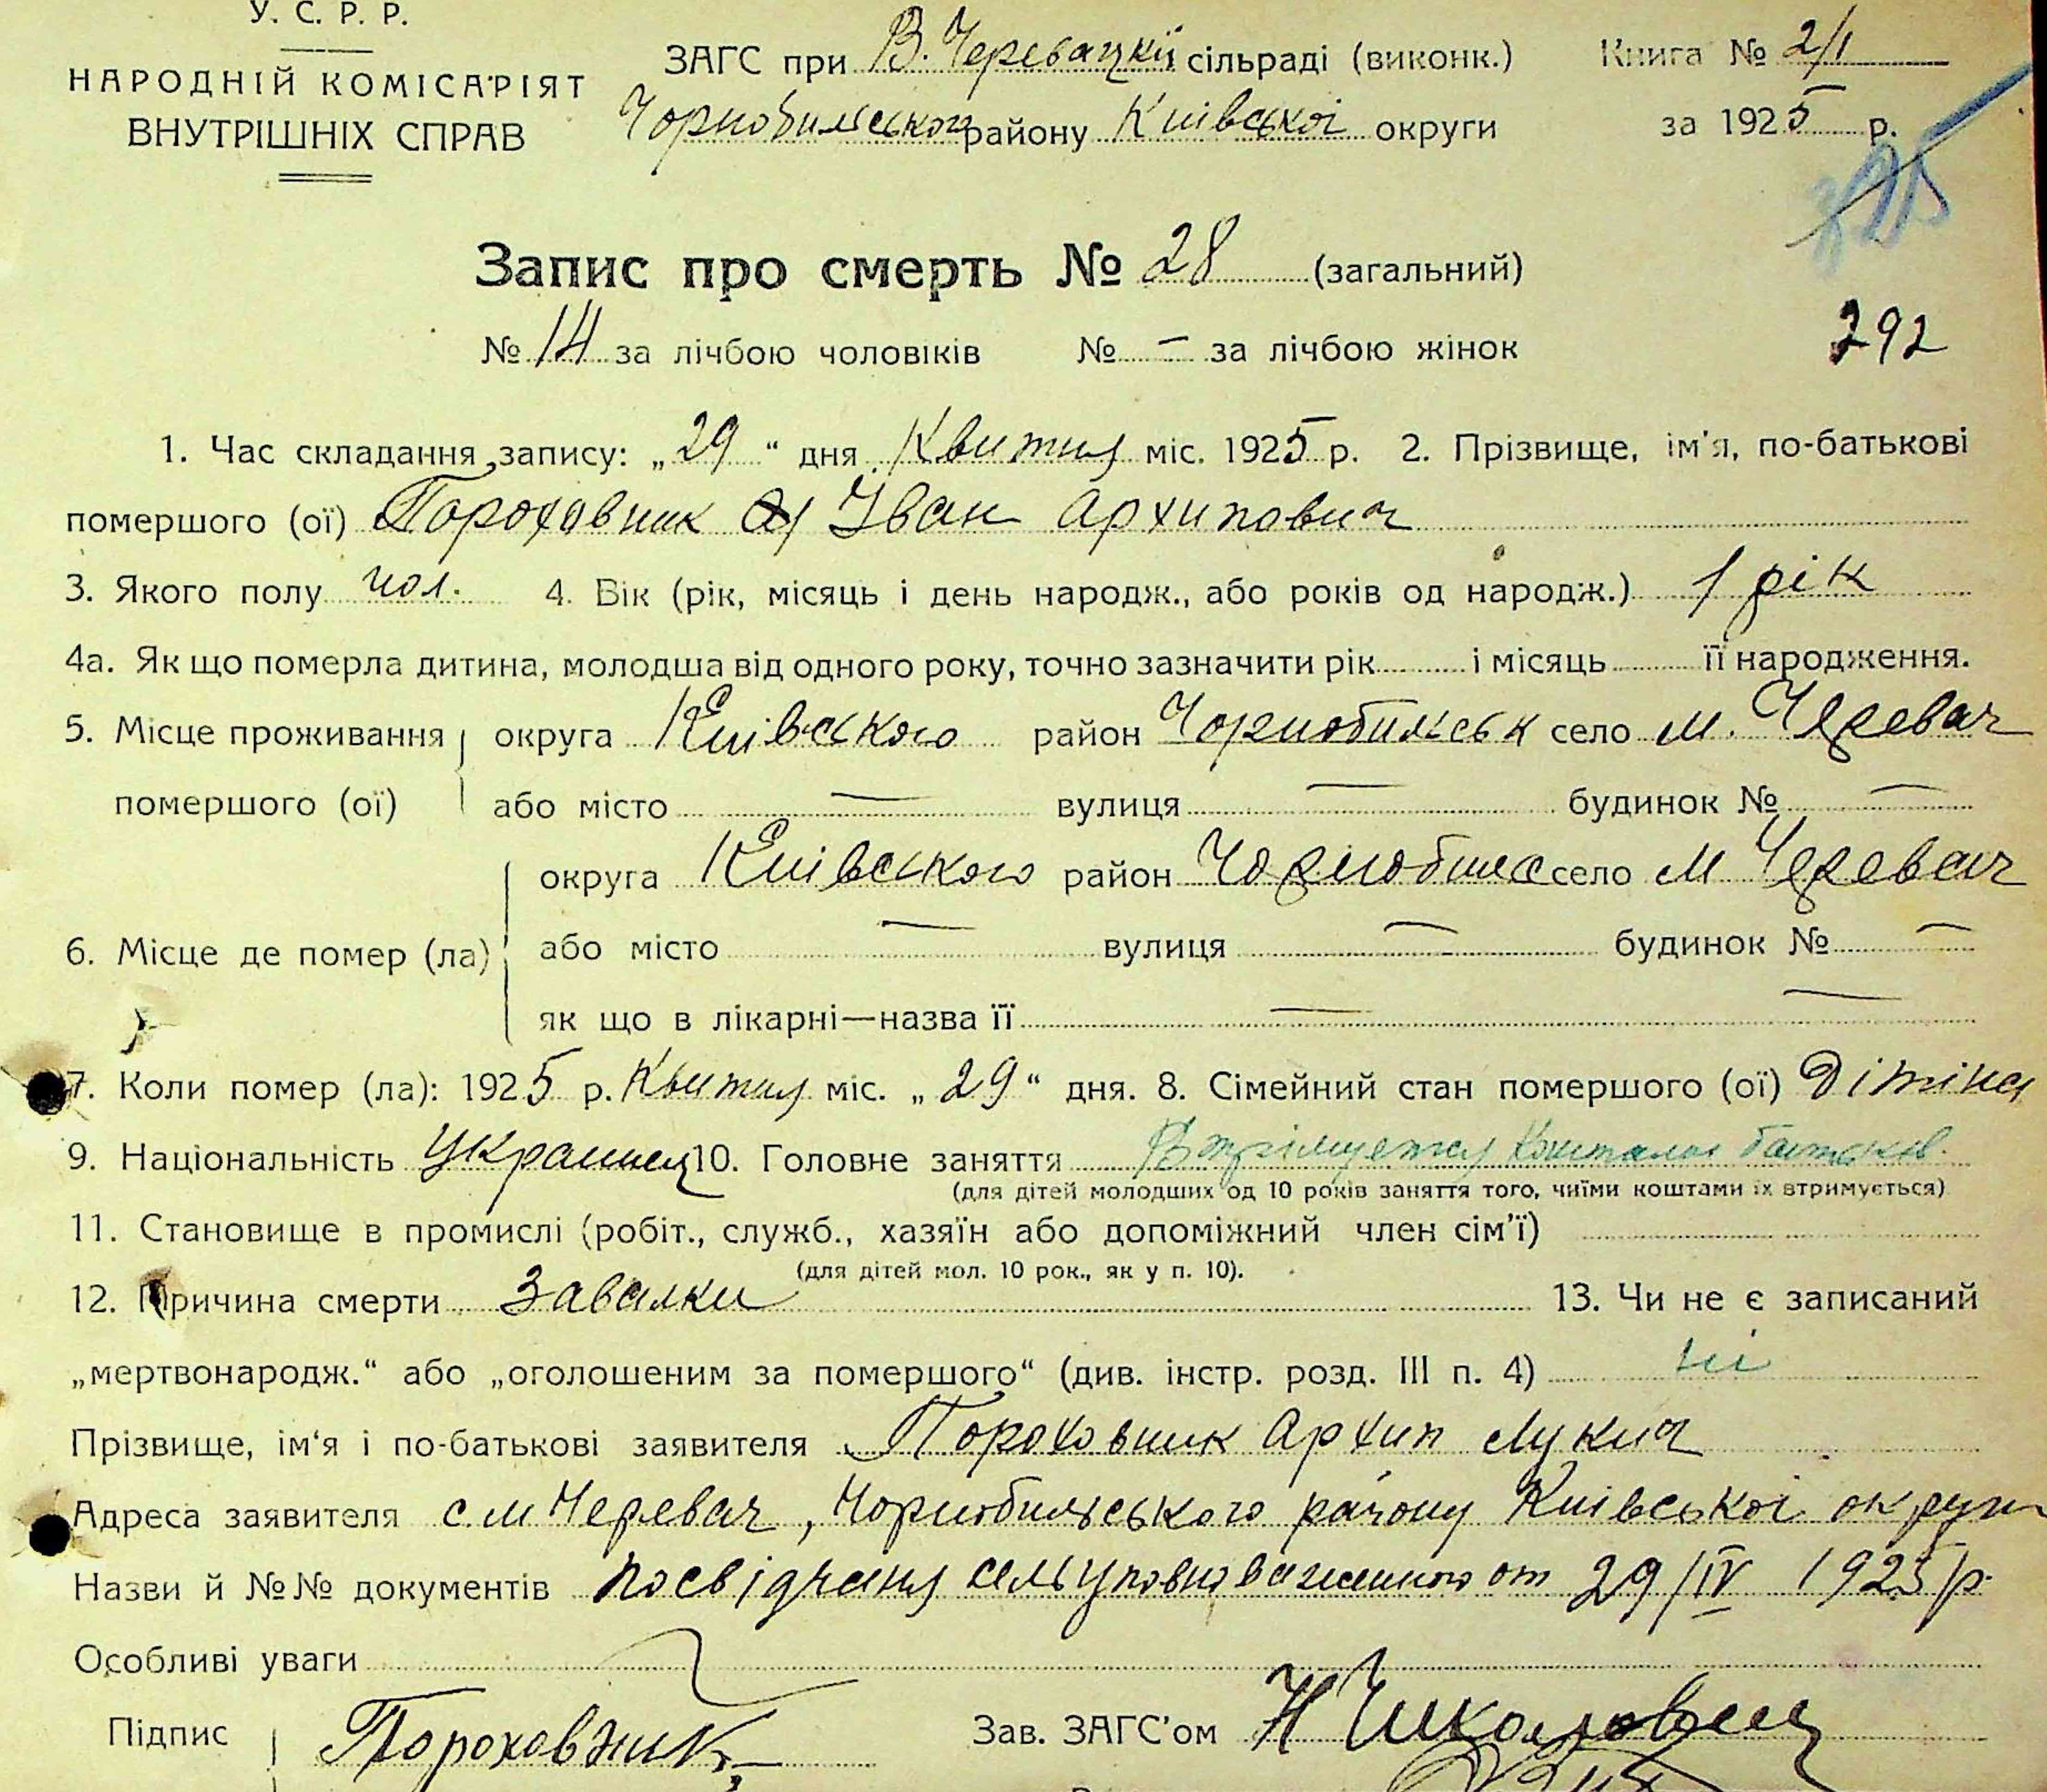 У. С. Р. Р.
НАРОДНІЙ КОМІСАРІЯТ
ВНУТРІШНІХ СПРАВ
ЗАГС при В. Черевацкії сільраді (виконк.)
Чорнобильського району Київської округи
Книга № 2/1
за 1925 р.
292
Запис про смерть № 28 (загальний)
№ 14 за лічбою чоловіків № – за лічбою жінок
1. Час складання запису: „29“ дня Квитня міс. 1925 р. 2. Прізвище, ім'я, по-батькові
помершого (ої) Пороховник Іван Архипович
3. Якого полу чол. 4. Вік (рік, місяць і день народж., або років од народж.) 1 рік
4а. Як що померла дитина, молодша від одного року, точно зазначити рік і місяць її народження.
5. Місце проживання помершого (ої) округа Київського район Чорнобильськ село М. Черевач
або місто — вулиця — будинок № —
6. Місце де помер (ла) округа Київського район Чорнобильс село М Черевач
або місто — вулиця — будинок № —
як що в лікарні—назва її — —
7. Коли помер (ла): 1925 р. Квитня міс. „29“ дня. 8. Сімейний стан помершого (ої) Дітіна
9. Національність Украинец 10. Головне заняття Втрімуется коштами батьків.
(для дітей молодших од 10 років заняття того, чиїми коштами їх втримується)
11. Становище в промислі (робіт., служб., хазяїн або допоміжний член сім'ї)
(для дітей мол. 10 рок., як у п. 10).
12. Причина смерти Завалки 13. Чи не є записаний
„мертвонародж.“ або „оголошеним за помершого“ (див. інстр. розд. III п. 4) ні
Прізвище, ім'я і по-батькові заявителя Пороховник Архип Лукич
Адреса заявителя с. М Черевач, Чорнобильського району Київської округи
Назви й №№ документів посвідчення сельуповноваженного от 29/IV 1925 р.
Особливі уваги
Підпис Пороховник
Зав. ЗАГС'ом